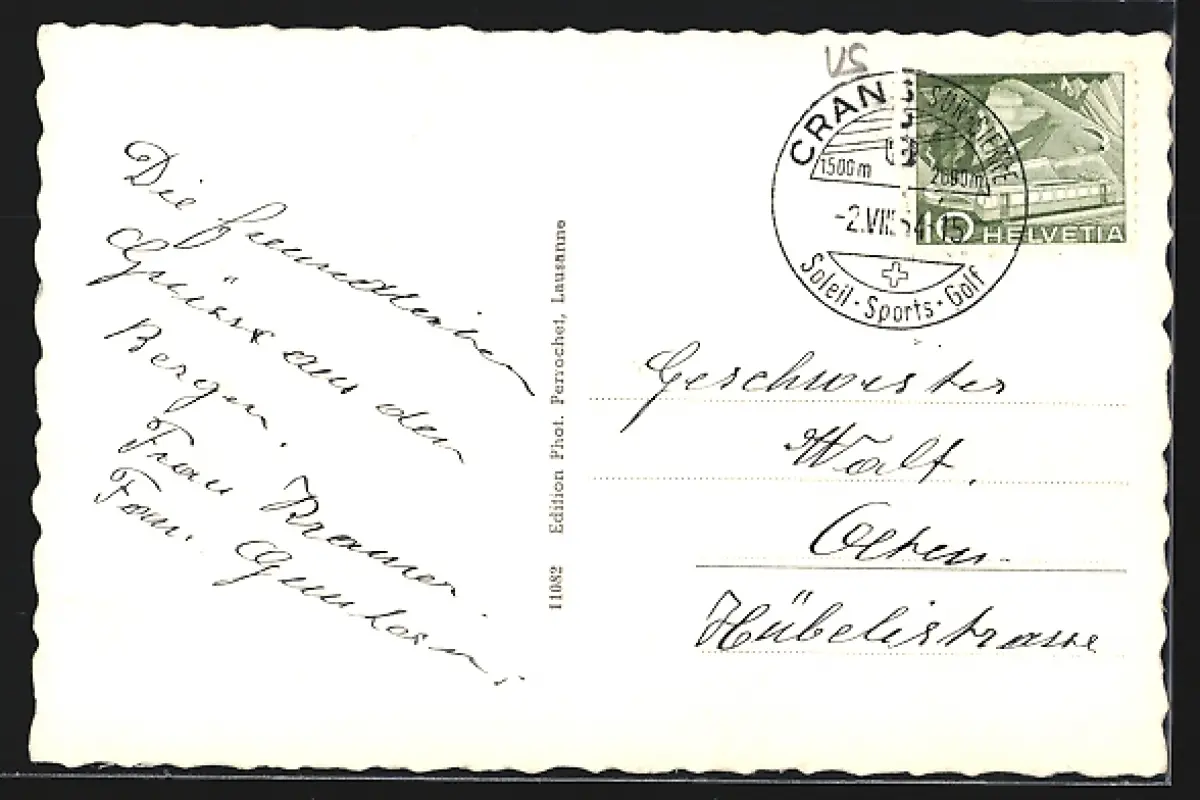 VS
CRANS SUR SIERRE
1500m 2600m
-2.VIII.54-15
Soleil · Sports · Golf
10 HELVETIA
Die freundlichen
Grüsse aus den
Bergen.
Frau Kramer.
Fam.
11082 Edition Phot. Perrochet, Lausanne
Geschwister
Wolf.
Olten.
Hübelistrasse